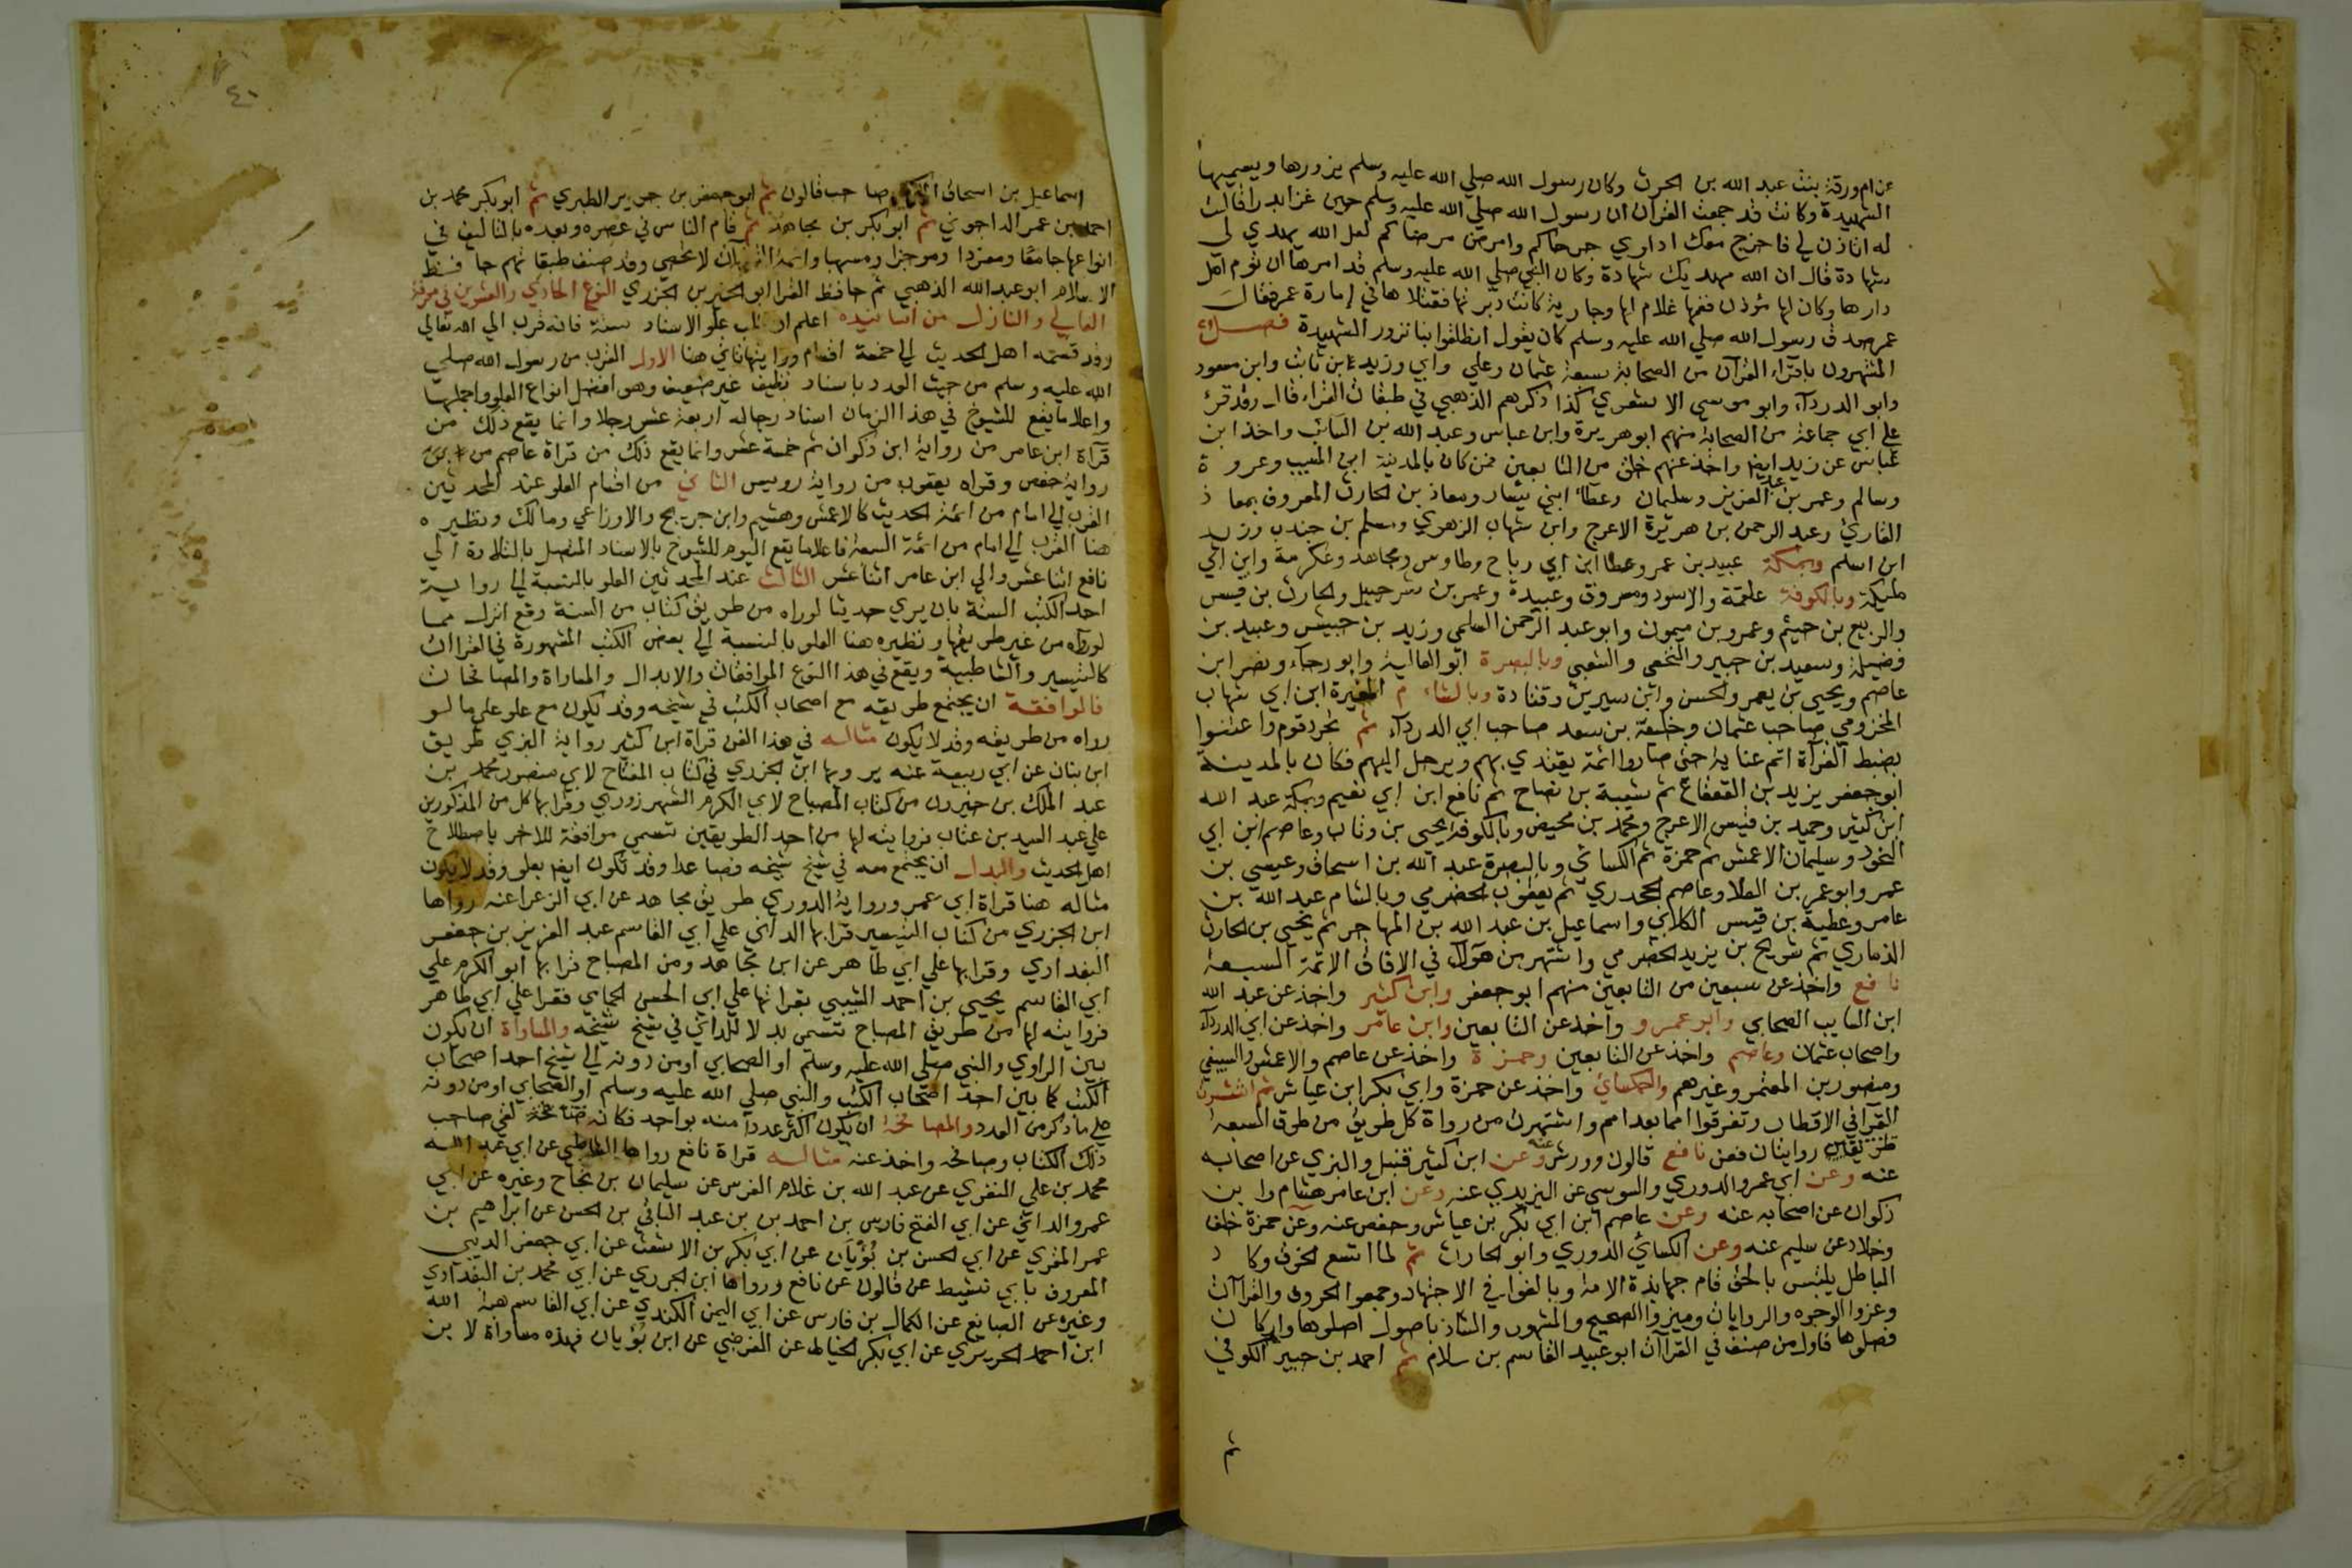 عن ام ورقة بنت عبد الله بن الحرث وكان رسول الله صلي الله عليه وسلم يزورها ويسميها
الشهيدة وكانت قد جمعت القران ان رسول الله صلي الله عليه وسلم حين غزا بدرا قالت
له اتاذن لي فاخرج معك اداوي جرحاكم وامرض مرضاكم لعل الله يهدي لي
شهادة قال ان الله مهد يك شهادة وكان النبي صلي الله عليه وسلم قد امرها ان تؤم اهل
دارها وكان لها مؤذن فغمها غلام لها وجارية كانت دبرتها فقتلاها في إمارة عمر فقال
عمر صدق رسول الله صلي الله عليه وسلم كان يقول انطلقوا بنا نزور الشهيدة فصل
المشهرون باقراء القرآن من الصحابة سبعة عثمان وعلي وابي وزيد ابن ثابت وابن مسعود
وابو الدردآء وابو موسي الاشعري كذا ذكرهم الذهبي في طبقات القراء قال وقد قرئ
علي ابي جماعة من الصحابة منهم ابو هريرة وابن عباس وعبد الله بن السائب واخذ ابن
عباس عن زيد ايضا واخذ عنهم خلق من التابعين فمن كان بالمدينة ابن المسيب وعروة
وسالم وعمر بن عبد العزيز وسليمان وعطاء ابني يسار ومعاذ بن الحارث المعروف بمعاذ
القاري وعبد الرحمن بن هرمزة الاعرج وابن شهاب الزهري ومسلم بن جندب وزيد
ابن اسلم وبمكة عبيد بن عمر وعطا ابن ابي رباح وطاوس ومجاهد وعكرمة وابن ابي
مليكة وبالكوفة علقمة والاسود ومسروق وعبيدة وعمر بن شرحبيل والحارث بن قيس
والربيع بن خيثم وعمرو بن ميمون وابو عبد الرحمن السلمي وزيد بن حبيش وعبيد بن
فضيلة وسعيد بن جبير والنخعي والشعبي وبالبصرة ابو العالية وابو رجآء ونصر ابن
عاصم ويحيى بن يعمر والحسن وابن سيرين وقتادة وبالشام المغيرة ابن ابي شهاب
المخزومي صاحب عثمان وخليفة بن سعد صاحب ابي الدردآء ثم تجرد قوم واعتنوا
بضبط القرآة اتم عناية حتى صاروا ائمة يقتدي بهم ويرحل اليهم فكان بالمدينة
ابو جعفر يزيد بن القعقاع ثم شيبة بن نصاح ثم نافع ابن ابي نعيم وبمكة عبد الله
ابن كثير وحميد بن قيس الاعرج ومحمد بن محيض وبالكوفة يحيى بن وثاب وعاصم ابن ابي
النجود وسليمان الاعمش ثم حمزة ثم الكسائي وبالبصرة عبد الله بن اسحاق وعيسى بن
عمر وابو عمر بن العلا وعاصم الجحدري ثم يعقوب الحضرمي وبالشام عبد الله بن
عامر وعطية بن قيس الكلابي واسماعيل بن عبد الله بن المهاجر ثم يحيى بن الحارث
الذماري ثم شريح بن يزيد الحضرمي واشتهر من هؤلآء في الافاق الائمة السبعة
نافع واخذ عن سبعين من التابعين منهم ابو جعفر وابن كثير واخذ عن عبد الله
ابن السايب الصحابي وابو عمرو واخذ عن التابعين وابن عامر واخذ عن ابي الدردآء
واصحاب عثمان وعاصم واخذ عن التابعين وحمزة واخذ عن عاصم والاعمش والسبيعي
ومنصور بن المعتمر وغيرهم والكسائي واخذ عن حمزة وابي بكر ابن عياش ثم انتشرت
القرآ في الاقطار وتفرقوا امما بعد امم واشتهر من رواة كل طريق من طرق السبعة
طريقان روايتان فعن نافع قالون وورش عنه وعن ابن كثير قنبل والبزي عن اصحابه
عنه وعن ابي عمرو الدوري والسوسي عن اليزيدي عنه وعن ابن عامر هشام وابن
ذكوان عن اصحابه عنه وعن عاصم ابن ابي بكر بن عياش وحفص عنه وعن حمزة خلف
وخلاد عن سليم عنه وعن الكسائي الدوري وابو الحارث ثم لما اتسع الخرق وكاد
الباطل يلتبس بالحق قام جهابذة الامة وبالغوا في الاجتهاد وجمعوا الحروف والقراآت
وعزوا الوجوه والروايات وميزوا الصحيح والمشهور والشاذ باصول اصلوها واركان
فصلوها فاول من صنف في القراآت ابو عبيد القاسم بن سلام ثم احمد بن جبير الكوفي
ثم
٤١
اسماعيل بن اسحاق صاحب قالون ثم ابو جعفر بن جرير الطبري ثم ابو بكر محمد بن
احمد بن عمر الداجوني ثم ابو بكر بن مجاهد ثم قام الناس في عصره وبعده بالتاليف في
انواعها جامعا ومفردا وموجزا ومسهبا وائمة القراات لا تحصى وقد صنف طبقاتهم حافظ
الاسلام ابو عبد الله الذهبي ثم حافظ القرا ابو الخير بن الجزري النوع الحادي والعشرين في معرفة
العالي والنازل من اسانيده اعلم ان طلب علو الاسناد سنة فانه قرب الي الله تعالي
وقد قسمه اهل الحديث الي خمسة اقسام ورايتها تاتي هنا الاول القرب من رسول الله صلي
الله عليه وسلم من حيث العدد باسناد نظيف غير ضعيف وهو افضل انواع العلو واجلها
واعلا ما يقع للشيوخ في هذا الزمان اسناد رجاله اربعة عشر رجلا وانما يقع ذلك من
قرآة ابن عامر من رواية ابن ذكوان ثم خمسة عشر وانما يقع ذلك من قراة عاصم من
رواية حفص وقراه يعقوب من رواية رويس الثاني من اقسام العلو عند المحدثين
القرب الي امام من ائمة الحديث كالاعمش وهشيم وابن جريج والاوزاعي ومالك ونظيره
هنا القرب الي امام من ائمة السبعة فاعلا ما يقع اليوم للشيوخ بالاسناد المتصل بالتلاوة الي
نافع اثنا عشر والي ابن عامر اثنا عشر الثالث عند المحدثين العلو بالنسبة الي رواية
احد الكتب الستة بان يري حديثا لو راه من طريق كتاب من الستة وقع انزل مما
لو رواه من غير طريقها ونظيره هنا العلو بالنسبة الي بعض الكتب المشهورة في القراات
كالتيسير والشاطبية ويقع في هذا النوع الموافقات والابدال والمساواة والمصافحات
فالموافقة ان يجتمع طريقه مع اصحاب الكتب في شيخه وقد يكون مع علو علي ما لو
رواه من طريقه وقد لا يكون مثاله في هذا الفن قراة ابن كثير رواية البزي طريق
ابن بنان عن ابي ربيعة عنه يرويها ابن الجزري في كتاب المفتاح لابي منصور محمد بن
عبد الملك بن خيرون من كتاب المصباح لابي الكرم الشهرزوري وقرابها كل من المذكورين
علي عبد السيد بن عتاب فروايته لها من احد الطريقين تسمي موافقة للاخر باصطلاح
اهل الحديث والبدل ان يجتمع معه في شيخ شيخه فصاعدا وقد تكون ايضا بعلو وقد لا يكون
مثاله هنا قراة ابي عمرو رواية الدوري طريق مجاهد عن ابي الزعرا عنه رواها
ابن الجزري من كتاب التيسير قرا بها الداني علي ابي القاسم عبد العزيز بن جعفر
البغدادي وقرا بها علي ابي طاهر عن ابن مجاهد ومن المصباح قرا بها ابو الكرم علي
ابي القاسم يحيى بن احمد السيبي بقراتها علي ابي الحسن الحمامي فقرا علي ابي طاهر
فروايته لها من طريق المصباح تسمى بدلا للداني في شيخ شيخه والمساواة ان يكون
بين الراوي والنبي صلي الله عليه وسلم او الصحابي او من دونه الي شيخ احد اصحاب
الكتب كما بين احد اصحاب الكتب والنبي صلي الله عليه وسلم او الصحابي او من دونه
علي ما ذكر من العدد والمصافحة ان يكون اكثر عددا منه بواحد فكانه لقي صاحب
ذلك الكتاب وصافحه واخذ عنه مثاله قراة نافع رواها الشاطبي عن ابي عبد الله
محمد بن علي النفزي عن عبد الله بن غلام الفرس عن سليمان بن نجاح وغيره عن ابي
عمرو الداني عن ابي الفتح فارس بن احمد بن عبد الباقي بن الحسن عن ابراهيم بن
عمر المقري عن ابي الحسن بن بُوْيَان عن ابي بكر بن الاشعث عن ابي جعفر الديبي
المعروف بابي نشيط عن قالون عن نافع ورواها ابن الجزري عن ابي محمد بن البغدادي
وغيره عن الصايغ عن الكمال بن فارس عن ابي اليمن الكندي عن ابي القاسم هبة الله
ابن احمد الحريري عن ابي بكر الخياط عن الفرضي عن ابن بويان فهذه مساواة لابن